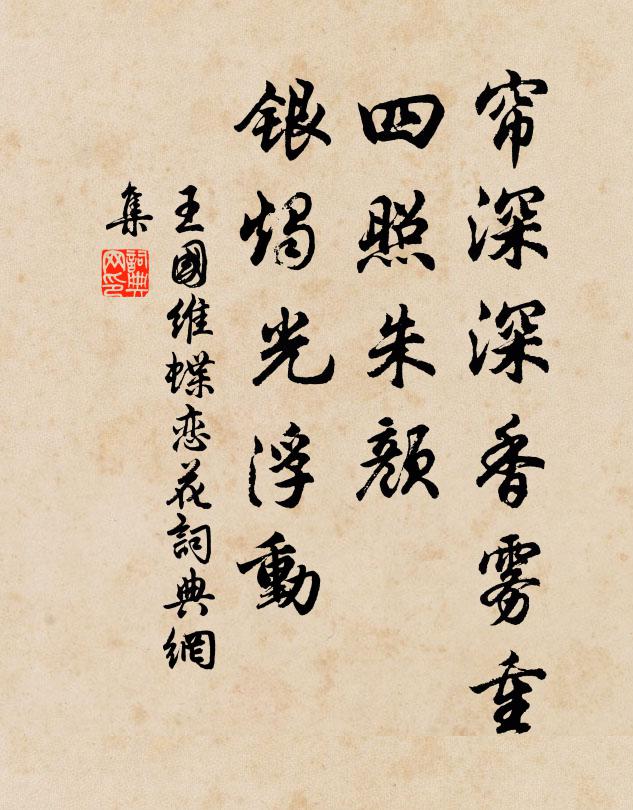 帘深深香雾重
四照朱颜
银烛光浮動
王國维蝶恋花詞典網
集
詞典网印